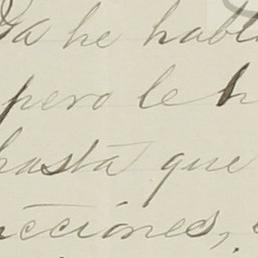 Ya he habl
pero le h
hasta que
cciones,